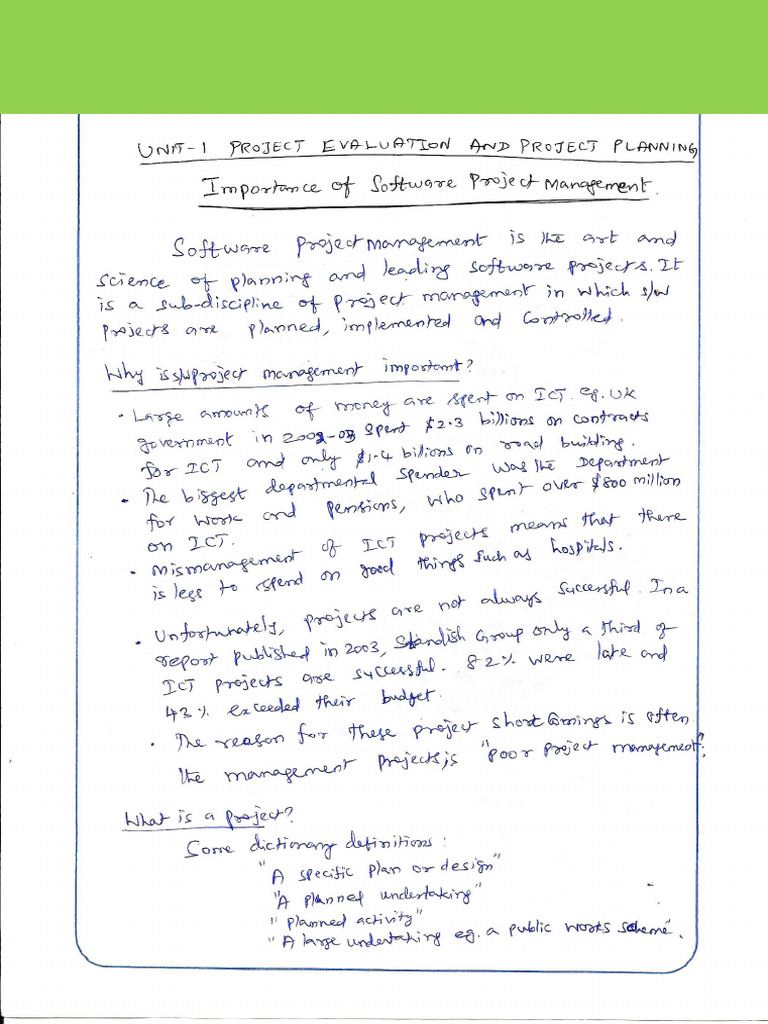 UNIT-1 PROJECT EVALUATION AND PROJECT PLANNING
Importance of Software Project Management.
Software Project Management is the art and
science of planning and leading software projects. It
is a sub-discipline of project management in which s/w
projects are planned, implemented and controlled.
Why is s/w project management important?
• Large amounts of money are spent on ICT. eg. UK
government in 2002-03 spent $2.3 billions on contracts
for ICT and only $1.4 bilions on road building.
• The biggest departmental spender was the Department
for work and pensions, who spent over $800 million
on ICT.
• Mismanagement of ICT projects means that there
is less to spend on good things such as hospitals.
• Unfortunately, projects are not always successful. In a
report published in 2003, Standish Group only a third of
ICT projects are successful. 82% were late and
43% exceeded their budget.
• The reason for these project shortcomings is often
the management projects, is "poor project management".
What is a project?
Some dictionary definitions:
"A specific plan or design"
"A planned undertaking"
"planned activity"
"A large undertaking eg. a public works scheme".